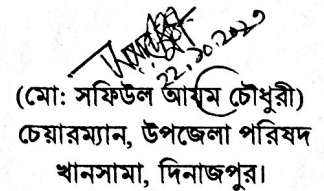 ২২.১০.২০২০
(মো: সফিউল আযম চৌধুরী)
চেয়ারম্যান, উপজেলা পরিষদ
খানসামা, দিনাজপুর।